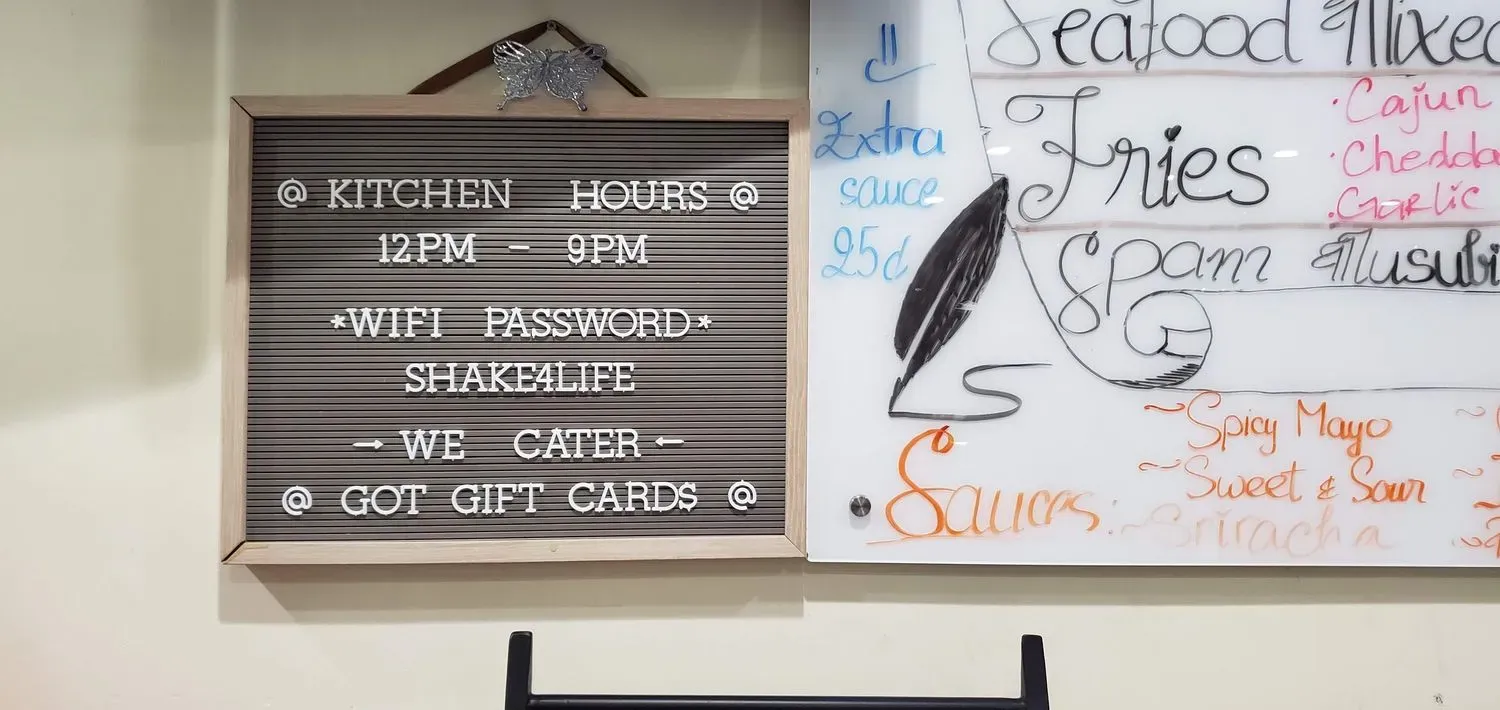 @ KITCHEN HOURS @
12PM – 9PM
*WIFI PASSWORD*
SHAKE4LIFE
→ WE CATER ←
@ GOT GIFT CARDS @
Extra
sauce
25¢
Seafood Mixed
Fries
· Cajun
· Chedda
· Garlic
Spam Musubi
Sauces:
~ Spicy Mayo
~ Sweet & Sour
~ Sriracha